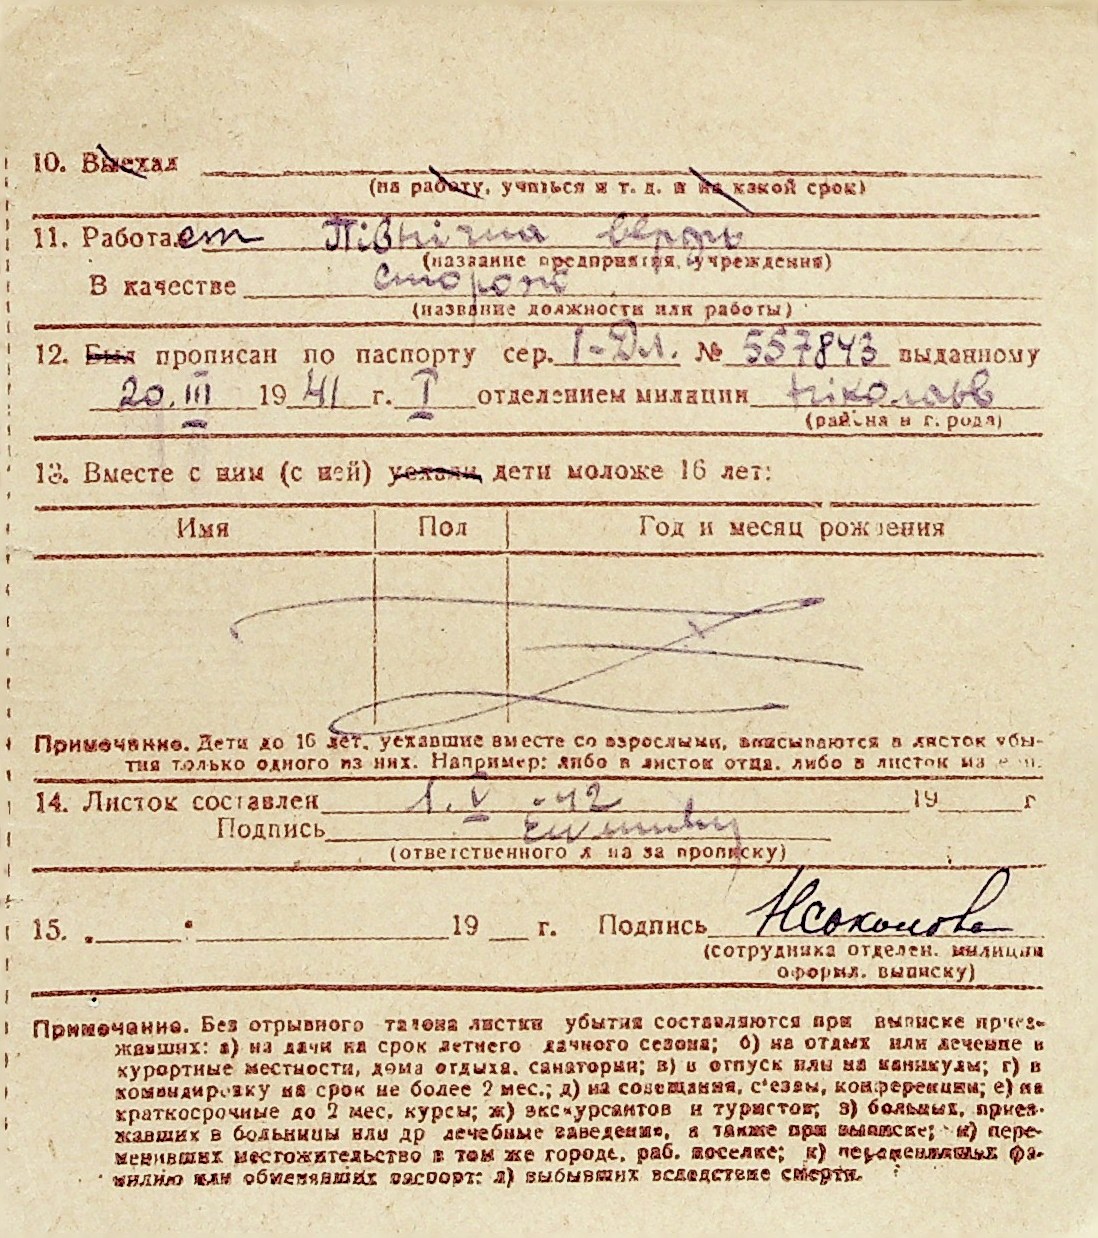 10. Выехал
(на работу, учиться и т. д. и на какой срок)
11. Работает Північна верфь
(название предприятия, учреждения)
В качестве сторож
(название должности или работы)
12. Был прописан по паспорту сер. I-Дл. № 557843 выданному
20. III 1941 г. I отделением милиции Ніколаїв
(района и города)
13. Вместе с ним (с ней) уехали дети моложе 16 лет:
Имя Пол Год и месяц рождения
Примечание. Дети до 16 лет, уехавшие вместе со взрослыми, вписываются в листок убы-
тия только одного из них. Например: либо в листок отца, либо в листок матери.
14. Листок составлен 1. V -42 19 г
Подпись
(ответственного лица за прописку)
15. . . 19 г. Подпись НСоколова
(сотрудника отделен. милиции
оформл. выписку)
Примечание. Без отрывного талона листки убытия составляются при выписке приез-
жавших: а) на дачи на срок летнего дачного сезона; б) на отдых или лечение в
курортные местности, дома отдыха, санатории; в) в отпуск или на каникулы; г) в
командировку на срок не более 2 мес.; д) на совещания, с'езды, конференции; е) на
краткосрочные до 2 мес. курсы; ж) экскурсантов и туристов; з) больных, приез-
жавших в больницы или др лечебные заведения, а также при выписке; и) пере-
менивших местожительство в том же городе, раб. поселке; к) переменивших фа-
милию или обменявших паспорт; л) выбывших вследствие смерти.